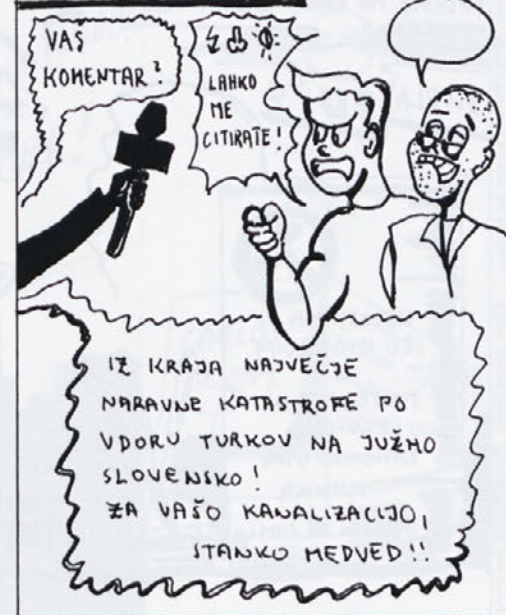 VAŠ
KOMENTAR?
LAHKO
ME
CITIRATE!
IZ KRAJA NAJVEČJE
NARAVNE KATASTROFE PO
VDORU TURKOV NA JUŽNO
SLOVENSKO!
ZA VAŠO KANALIZACIJO,
STANKO MEDVED!!